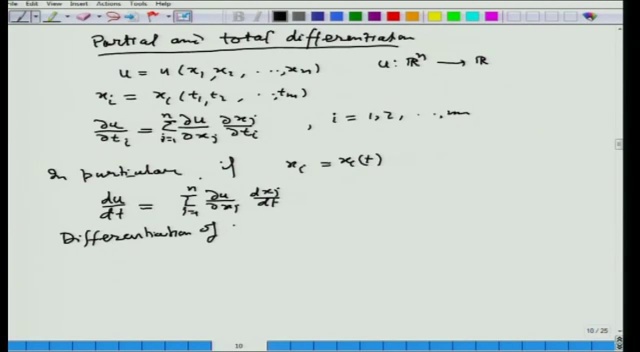 File Edit View Insert Actions Tools Help
Partial and total differentiation
u = u(x₁, x₂, ..., xₙ) u: ℝⁿ → ℝ
xᵢ = xᵢ(t₁, t₂, ..., tₘ)
∂u/∂tᵢ = Σⱼ₌₁ⁿ ∂u/∂xⱼ ∂xⱼ/∂tᵢ , i = 1, 2, ..., m
In particular, if xᵢ = xᵢ(t)
du/dt = Σⱼ₌₁ⁿ ∂u/∂xⱼ dxⱼ/dt
Differentiation of
10 / 25
10